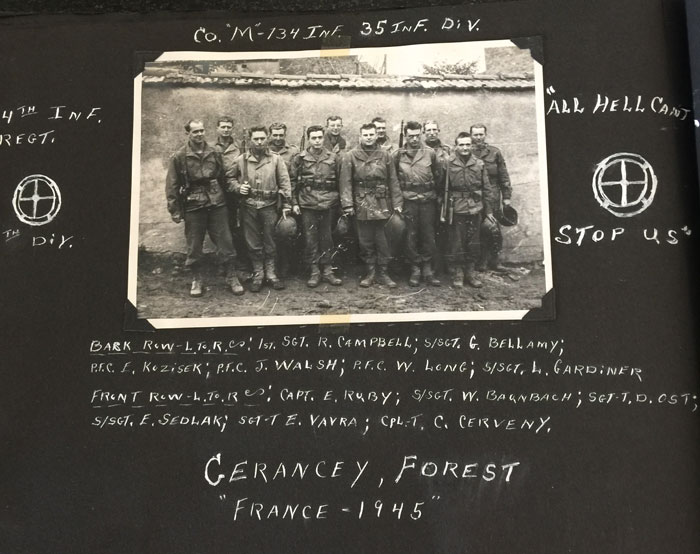 Co. "M"-134 INF. 35 INF. DIV.
4TH INF.
REGT.
TH DIV.
"ALL HELL CAN'T
STOP US"
BACK ROW-L.TO.R.: 1ST. SGT. R. CAMPBELL; S/SGT. G. BELLAMY;
P.F.C. E. KOZISEK; P.F.C. J. WALSH; P.F.C. W. LONG; S/SGT. L. GARDINER
FRONT ROW-L.TO.R: CAPT. E. RUBY; S/SGT. W. BAUNBACH; SGT-T. D. OST;
S/SGT. E. SEDLAK; SGT-T E. VAVRA; CPL-T. C. CERVENY.
GERANCEY, FOREST
"FRANCE-1945"